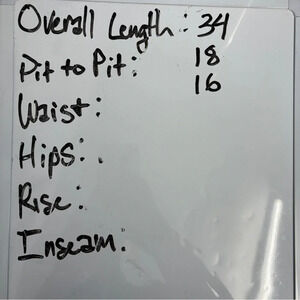 Overall Length: 34
Pit to Pit: 18
Waist: 16
Hips:
Rise:
Inseam: